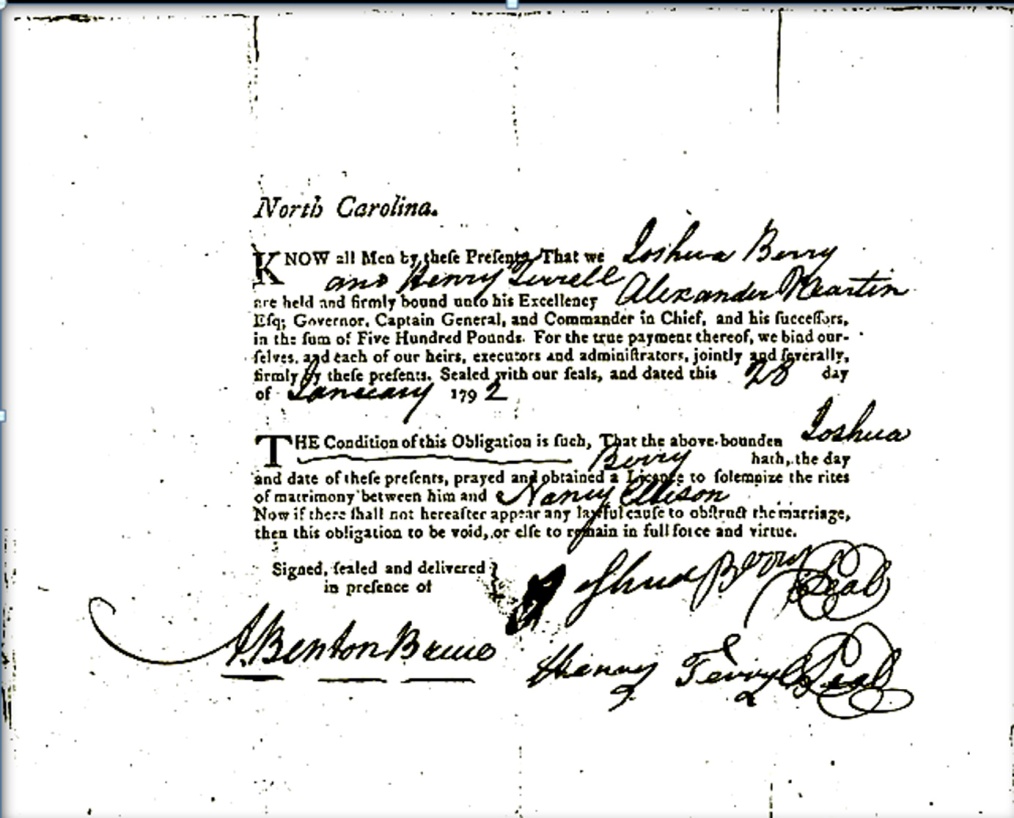 North Carolina.
KNOW all Men by these Presents, That we Joshua Berry
and Henry Terrell
are held and firmly bound unto his Excellency Alexander Martin
Esq; Governor, Captain General, and Commander in Chief, and his successors,
in the sum of Five Hundred Pounds. For the true payment thereof, we bind our-
selves, and each of our heirs, executors and administrators, jointly and severally,
firmly by these presents. Sealed with our seals, and dated this 28 day
of January 1792
THE Condition of this Obligation is such, That the above-bounden Joshua
Berry hath, the day
and date of these presents, prayed and obtained a Licence to solemnize the rites
of matrimony between him and Nancy Ellison
Now if there shall not hereafter appear any lawful cause to obstruct the marriage,
then this obligation to be void, or else to remain in full force and virtue.
Signed, sealed and delivered
in presence of
Joshua Berry Seal
A. Benton Bruce
Henry Seal